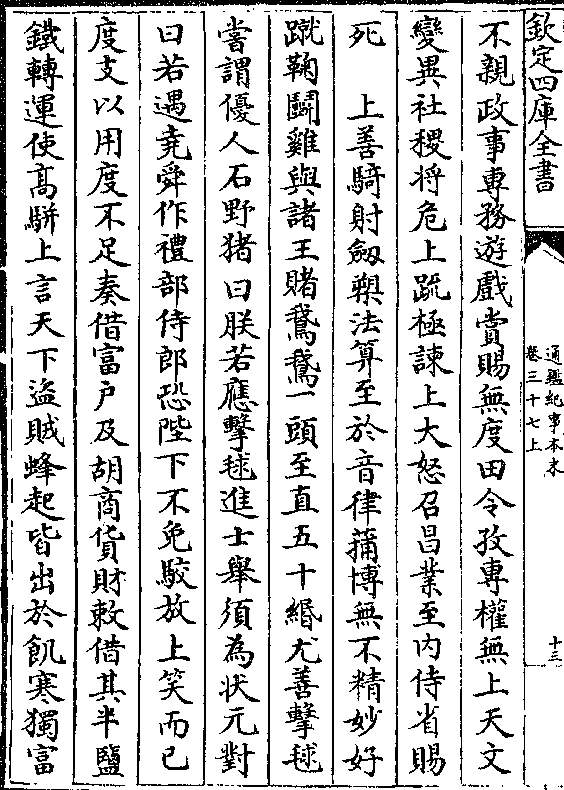 欽定四庫全書
通鑑紀事本末
卷三十七上
十三
不親政事專務遊戲賞賜無度田令孜專權無上天文
變異社稷将危上䟽極諫上大怒召昌業至内侍省賜
死　上善騎射劒槊法算至於音律蒱博無不精妙好
蹴鞠鬭雞與諸王賭鵞鵞一頭至直五十緡尤善擊毬
嘗謂優人石野猪曰朕若應擊毬進士舉須為状元對
曰若遇堯舜作禮部侍郎恐陛下不免駮放上笑而已
度支以用度不足奏借富户及胡商貨財敕借其半鹽
鐵轉運使髙駢上言天下盗賊蜂起皆出於飢寒獨富